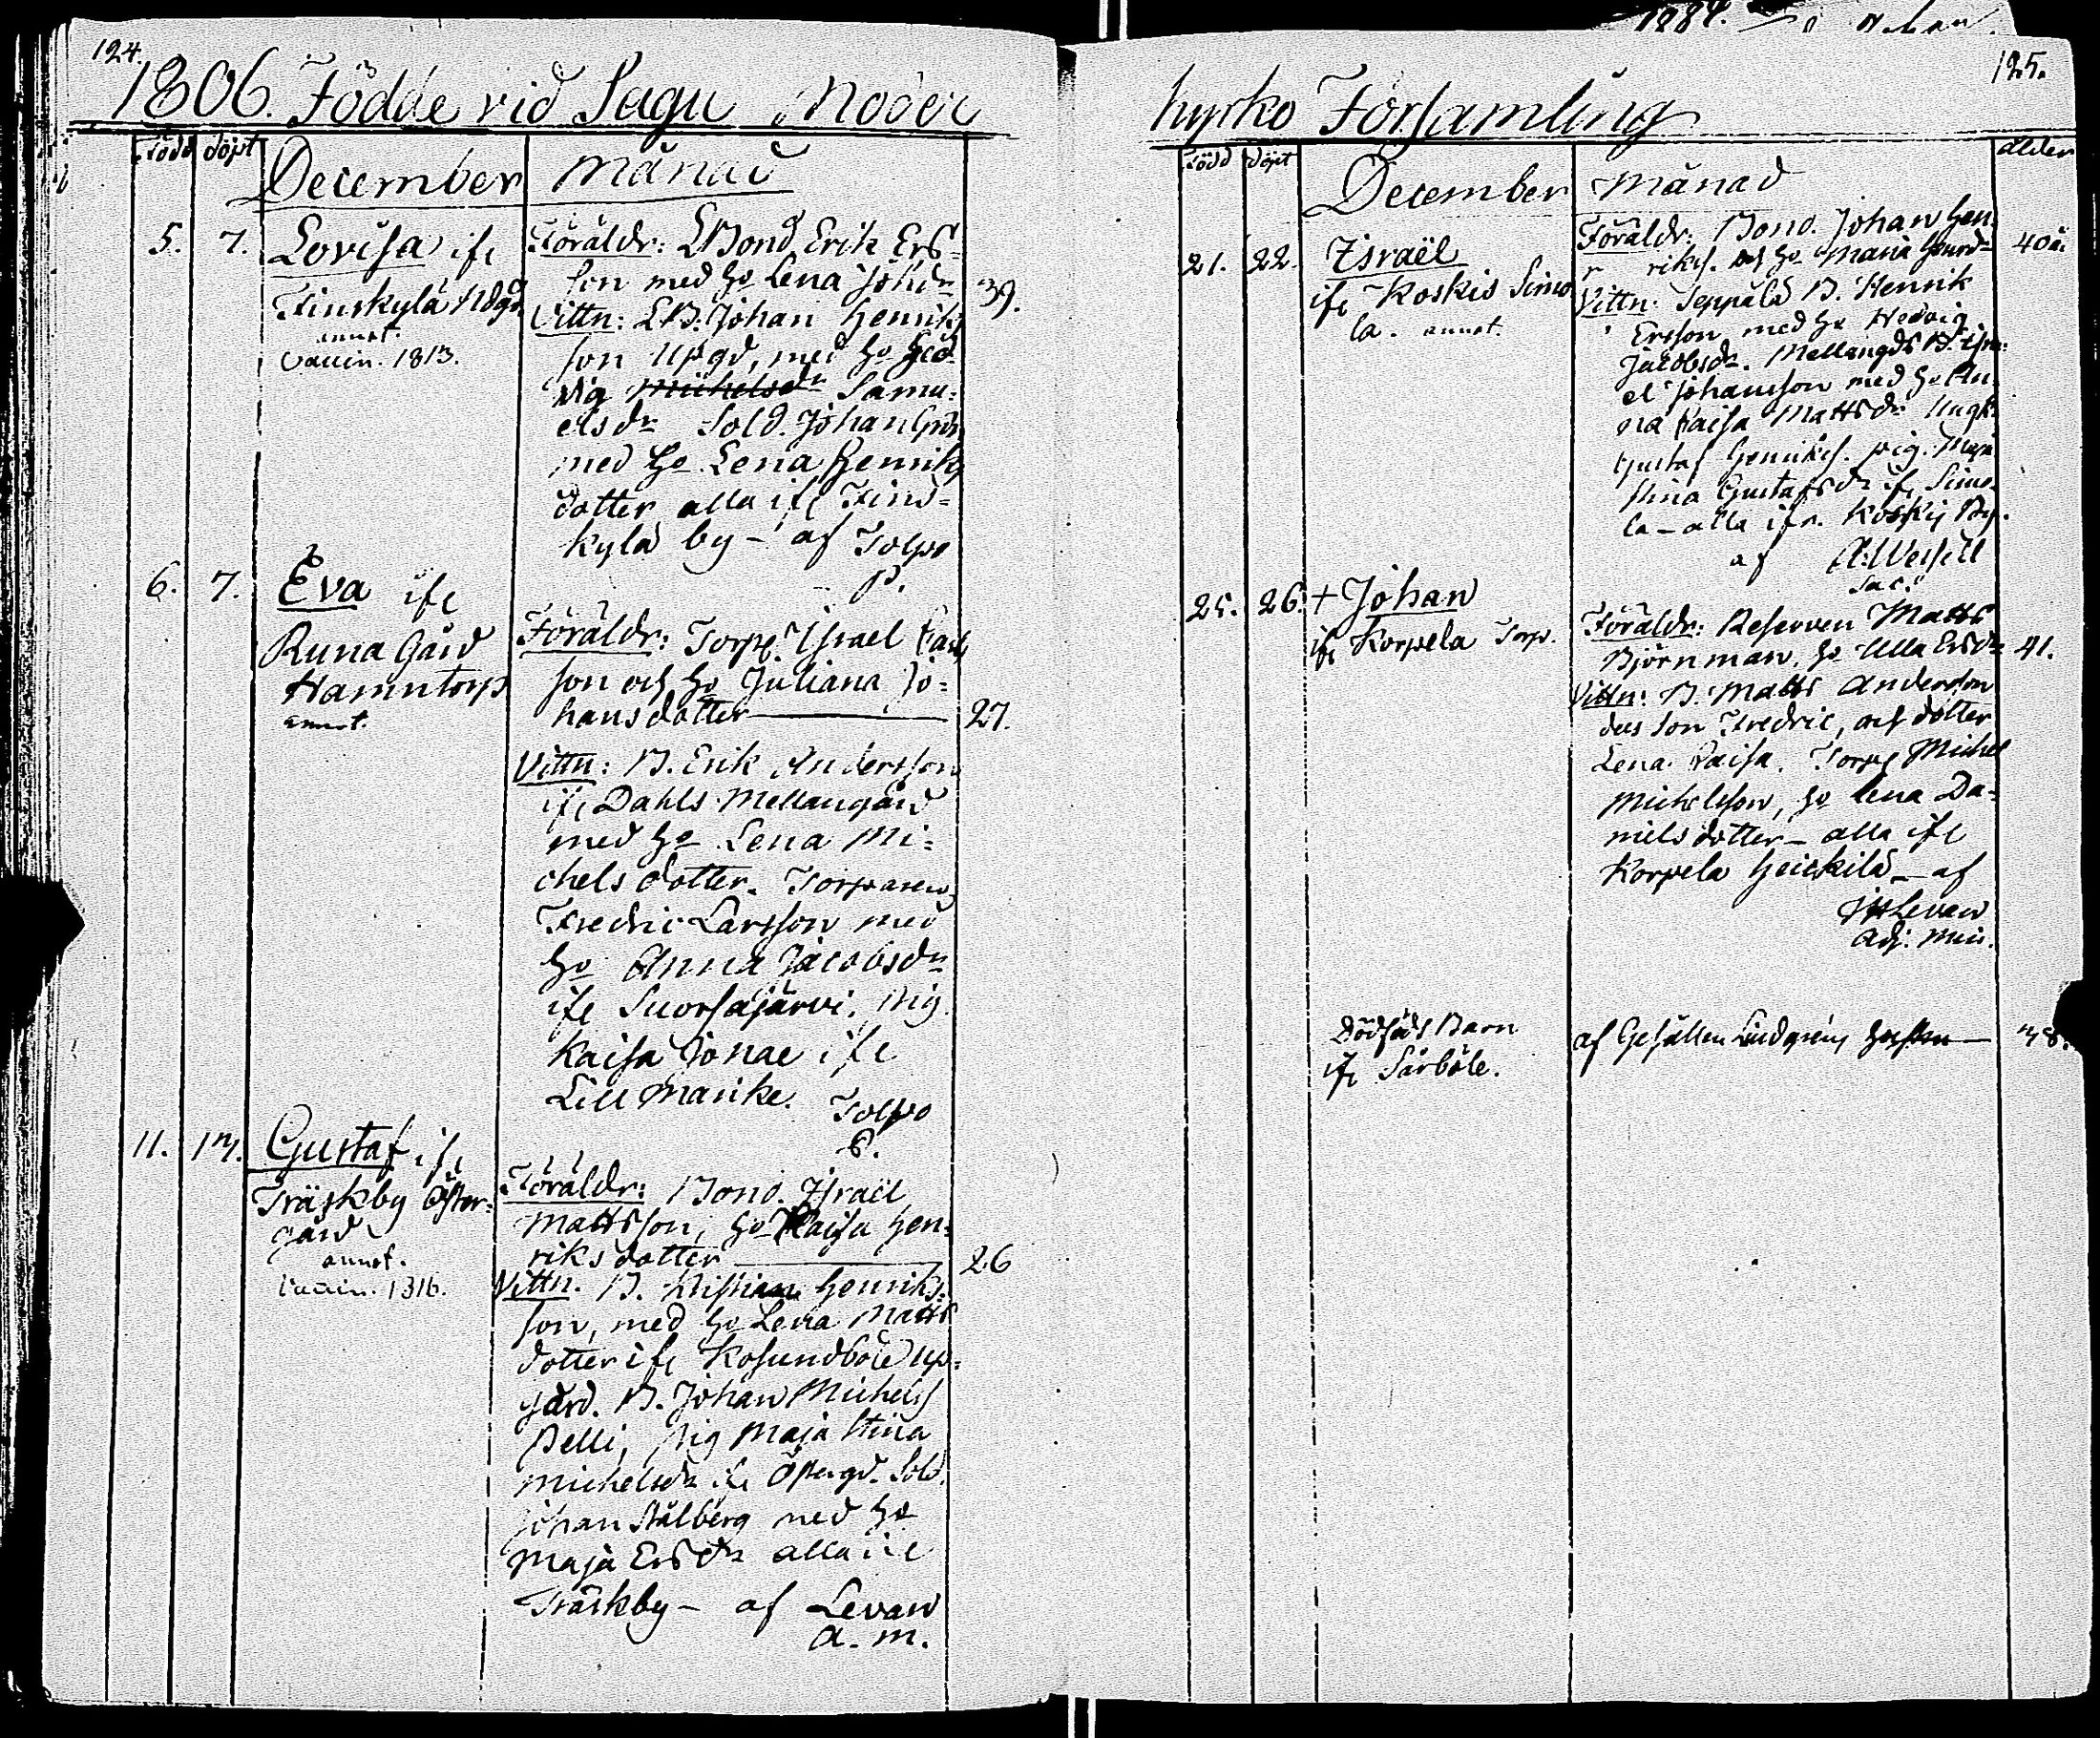 124.
1806. Födde vid Sagu Moder
Född döpt
December Månad
5. 7. Lovisa ifr
Finskylä Ndgd
annot.
Vaccin. 1813.
Föräldr: LBond Erik Ers=
son med h:o Lena Johdr 39.
Vittn: LB. Johan Henriks
son Upgd, med h:o Hed
vig Michelsdr Samu=
elsdr Sold. Johan
med h:o Lena Henriks
dotter alla ifr Fins=
kylä by - af Tolpo
P.
6. 7. Eva ifr
Runa Gård
Hamntorp
annot.
Föräldr: Torp. Israel Carls
son och h:o Juliana Jo=
hansdotter 27.
Vittn: B. Erik Andersson
ifr Dahls Mellangård
med h:o Lena Mi=
chelsdotter. Torparen
Fredric Larsson med
h:o Anna Jacobsdr
ifr Suorsajärvi. Pig.
Kaisa Jonae ifr
Lill Manke. Tolpo
P.
11. 17. Gustaf ifr
Träskby Öster=
gård
annot.
Vaccin. 1816.
Föräldr: Bond. Israël
Mattsson, h:o Kaisa Hen=
riksdotter 26
Vittn. B. Kristian Henriks=
son, med h:o Lena Matts
dotter ifr Kosundböle up=
gård. B. Johan Michels
Pelli, pig Maja Stina
Michelsdr ifr Östergd. Sold.
Johan Stålberg med h:o
Maja Ersdr alla ifr
Träskby - af Levan
A. M.
125.
kyrko Församling
Född döpt ålder
December Månad
21. 22. Israël
ifr Koskis Simo
la. annot.
Föräldr: Bond. Johan Hen
riks. och h:o Maria 40 å.
Vittn: Seppälä B. Henrik
Ersson med h:o Hedvig
Jacobsdr. Mellangds B. Isra=
el Johansson med h:o An
na Kaisa Mattsdr. Ungk.
Gustaf Henriks. pig. Maja
Stina Gustafsdr ifr Simo
la - alla ifr. Koskis By.
af
Sac.
25. 26. + Johan
ifr Korpela Torp.
Föräldr: Reserven Matts
Björnman, h:o Ulla Ersdr 41.
Vittn: B. Matts Anderson
des son Fredric, och dotter
Lena Kaisa. Torp. Michel
Michelsson, h:o Lena Da=
nielsdotter - alla ifr
Korpela Heickilä - af
Levan
Adj. Min.
Dödfödt Barn
ifr Särböle.
af Gesällen Lindgrens hustru 38.